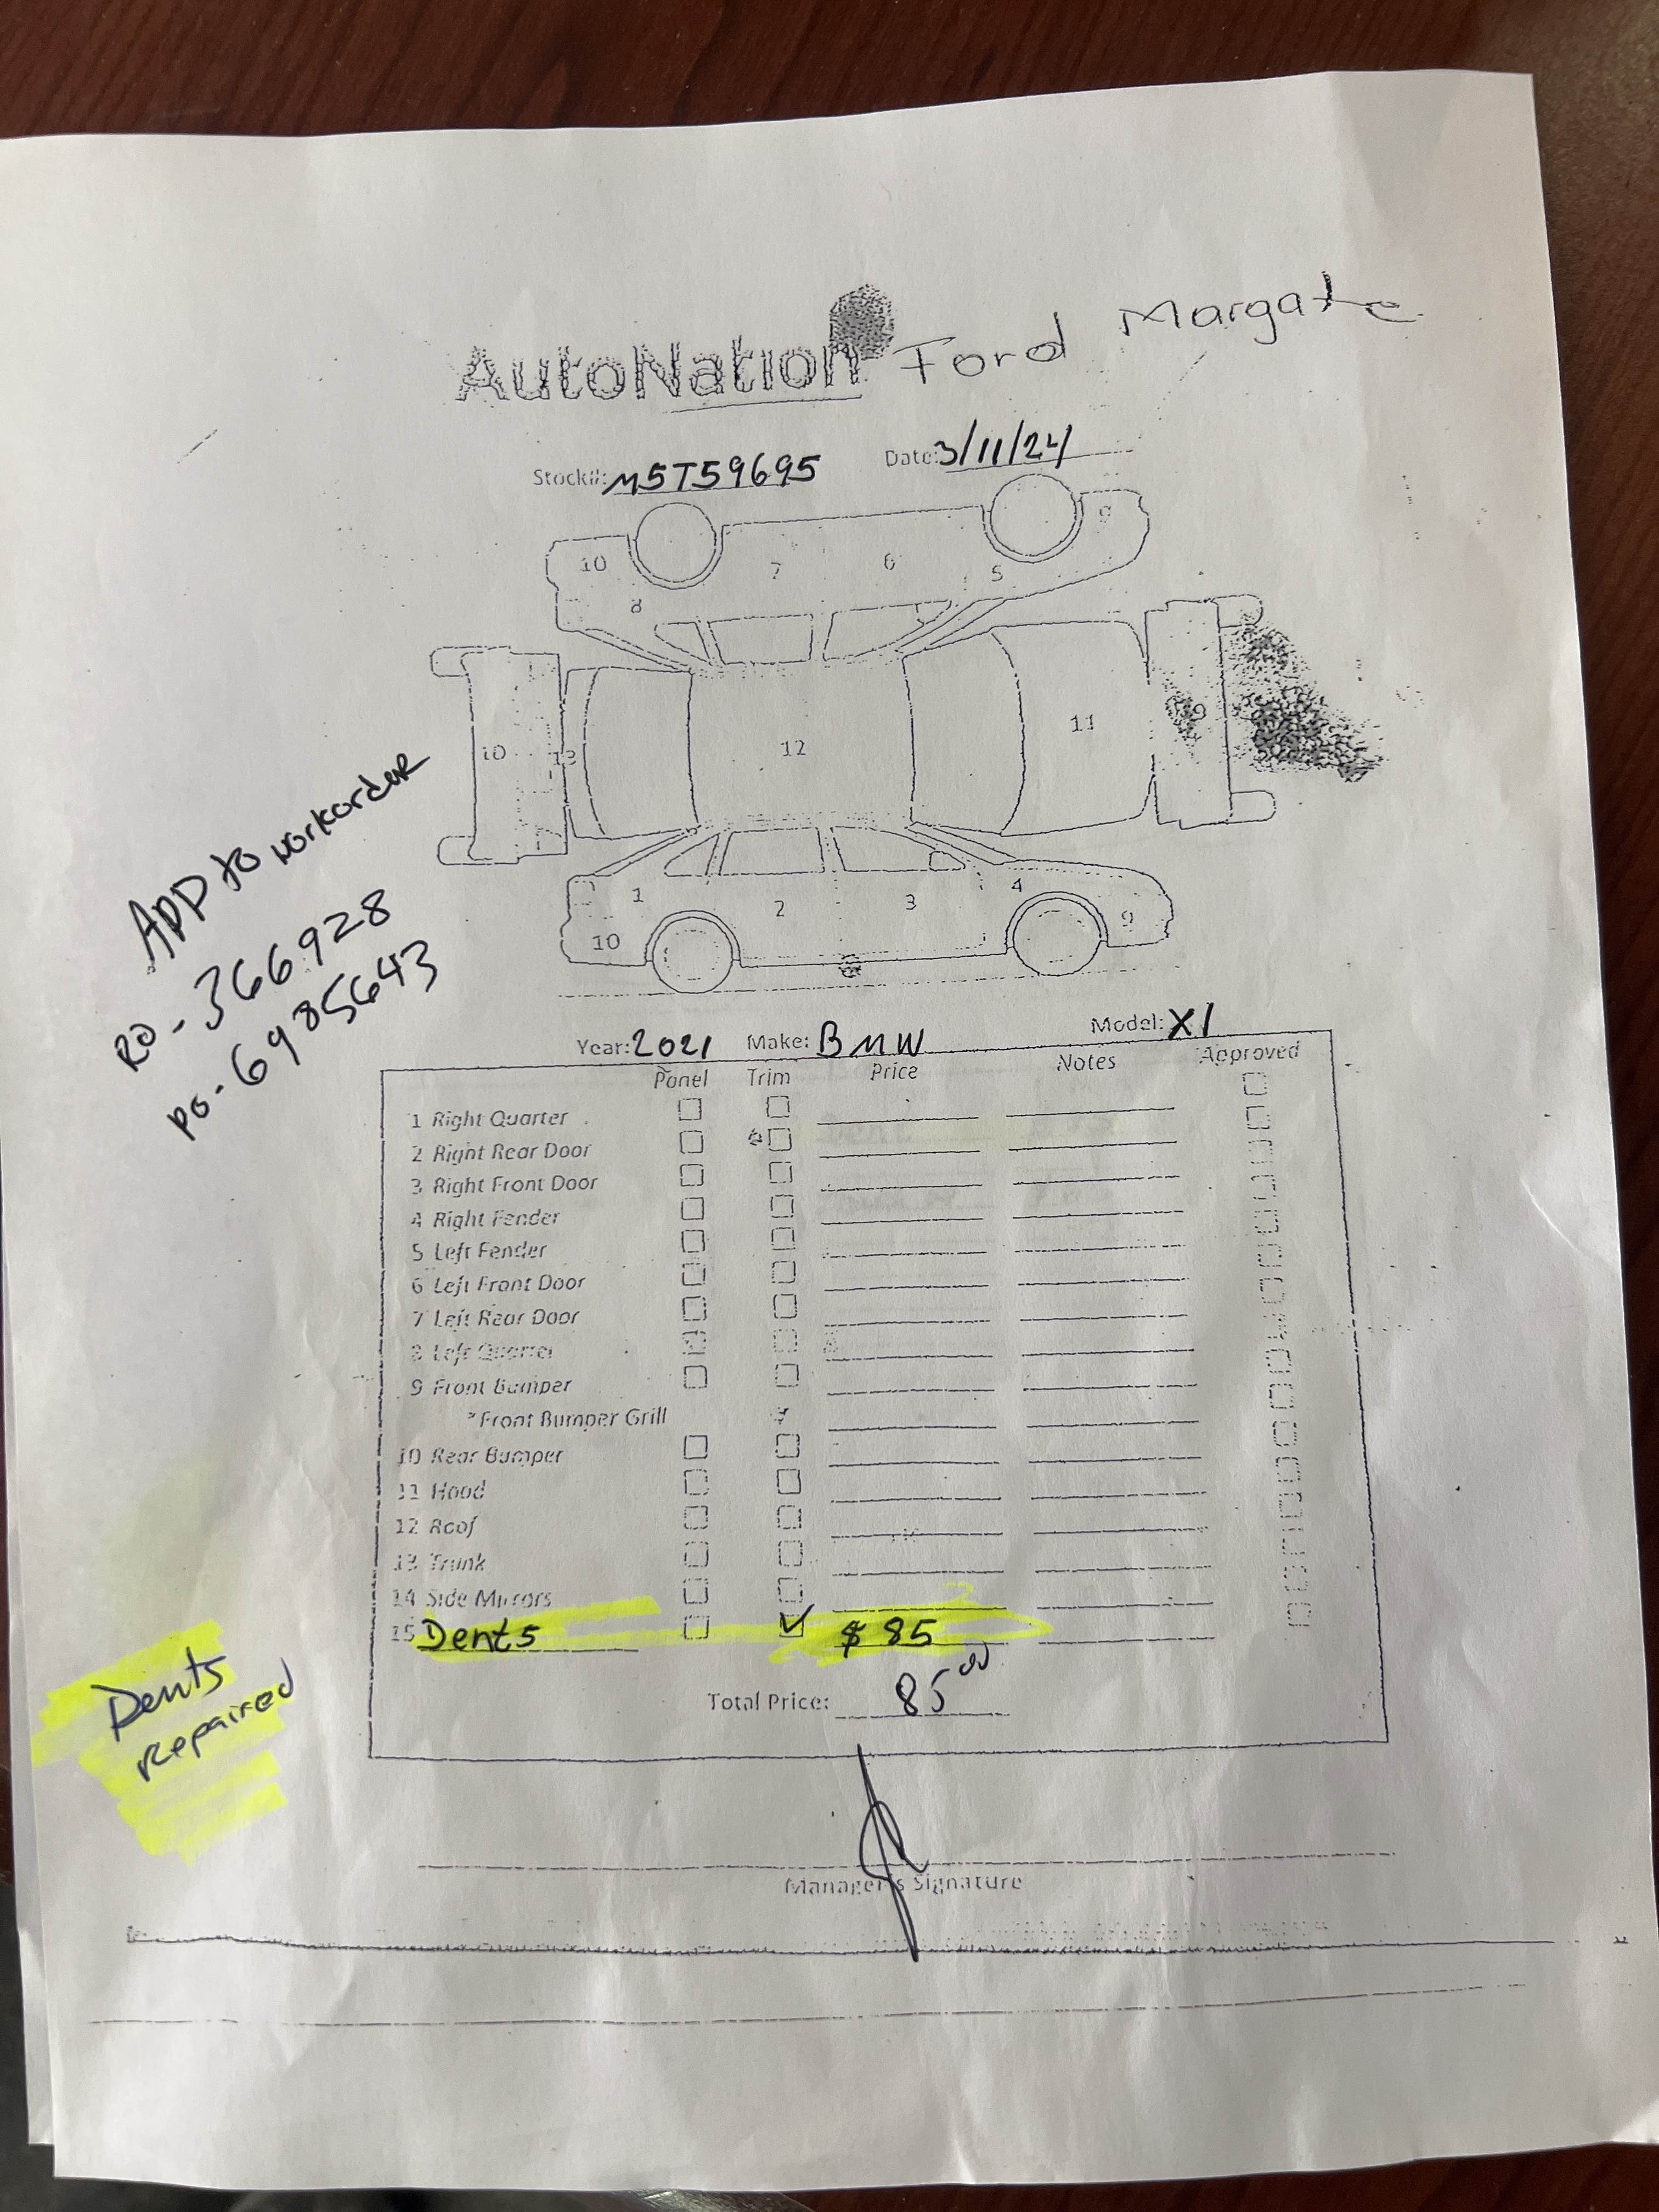 AutoNation Ford Margate
Stock#: M5T59695 Date: 3/11/24
10 7 6 5 9
8
10 13 12 11 9
1 2 3 4 9
10
App to workorder
RO - 366928
PO - 6985643
Year: 2021 Make: BMW Model: X1
Panel Trim Price Notes Approved
1 Right Quarter
2 Right Rear Door
3 Right Front Door
4 Right Fender
5 Left Fender
6 Left Front Door
7 Left Rear Door
8 Left Quarter
9 Front Bumper
*Front Bumper Grill
10 Rear Bumper
11 Hood
12 Roof
13 Trunk
14 Side Mirrors
15 Dents ✓ $85
Total Price: 85 00
Dents
repaired
Manager's Signature